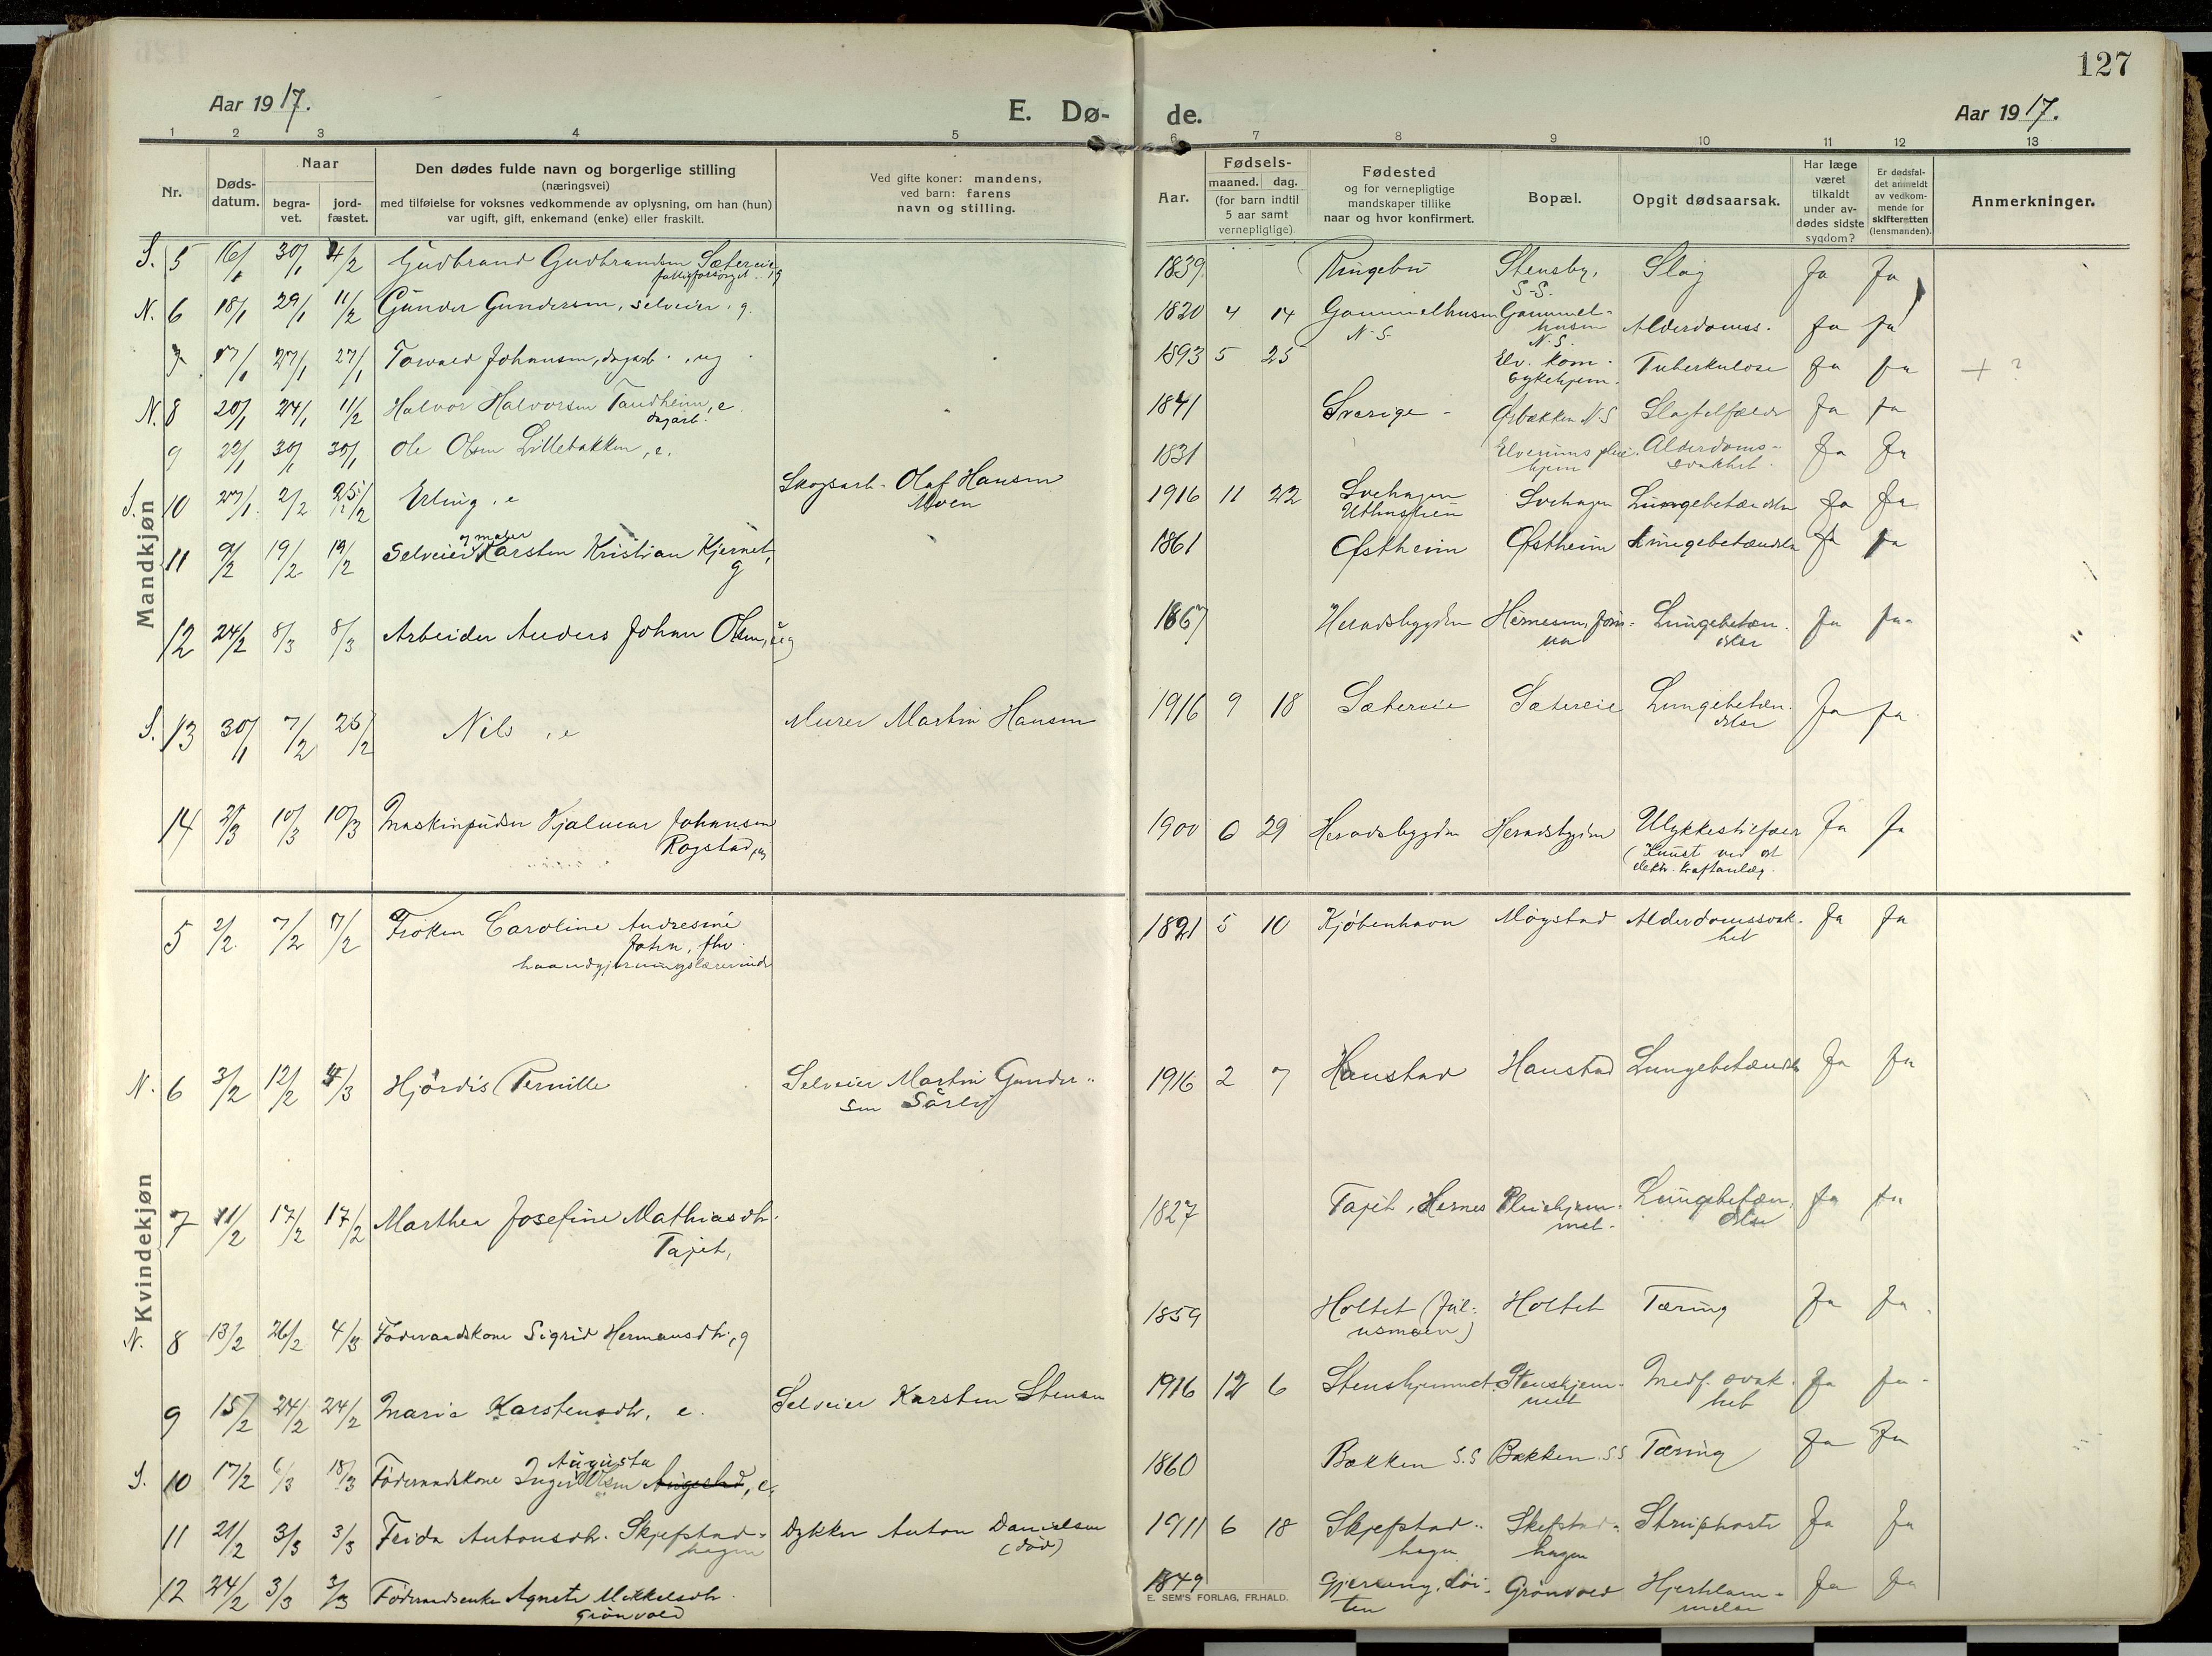 127
Aar 1917.
E. Dø-
de.
Aar 1917.
1 2 3 4 5 6 7 8 9 10 11 12 13
Nr.
Døds-
datum.
Naar
begra-
vet.
jord-
fæstet.
Den dødes fulde navn og borgerlige stilling
(næringsvei)
med tilføielse for voksnes vedkommende av oplysning, om han (hun)
var ugift, gift, enkemand (enke) eller fraskilt.
Ved gifte koner: mandens,
ved barn: farens
navn og stilling.
Aar.
Fødsels-
maaned. dag.
(for barn indtil
5 aar samt
vernepligtige)
Fødested
og for vernepligtige
mandskaper tillike
naar og hvor konfirmert.
Bopæl.
Opgit dødsaarsak.
Har læge
været
tilkaldt
under av-
dødes sidste
sygdom?
Er dødsfal-
det anmeldt
av vedkom-
mende for
skifteretten
(lensmanden).
Anmerkninger.
Mandkjøn
S. 5 16/1 30/1 4/2 Gudbrand Gudbrandsen Sætereie 1839 Ringebu Stensby, Slag Ja Ja
fattigforsørget
S.S.
N. 6 18/1 29/1 11/2 Gunder Gundersen, selveier, g. 1820 4 14 Gammelhusen Gammel- Alderdomss. Ja Ja
N.S. husen
N.S.
7 17/1 27/1 27/1 Torvald Johansen, dagarb., ug 1893 5 25 Elv. kom. Tuberkulose Ja Ja + ?
sykehjem.
N. 8 20/1 24/1 11/2 Halvor Halvorsen Tandheim, e. 1841 Sverige - N.S Slagtilfælde Ja Ja
dagarb.
9 22/1 30/1 30/1 Ole Olsen Lillebakken, e. 1831 Elverums pleie- Alderdoms- Ja Ja
hjem svakhet.
S. 10 27/1 2/2 25/2 Erling, e Skogsarb. Olaf Hansen 1916 11 22 Svehagen Svehagen Lungebetændelse Ja Ja
Moen
11 9/2 19/2 19/2 Selveier og maler Karsten Kristian Kjernet, 1861 Østheim Østheim Lungebetændelse Ja Ja
g
12 24/2 8/3 8/3 Arbeider Anders Johan Olsen, ug 1867 Heradsbygden Hernesen, Lungebetæn- Ja Ja
delse
S. 13 30/1 7/2 25/2 Nils, e Murer Martin Hansen 1916 9 18 Sætereie Sætereie Lungebetæn- Ja Ja
delse
14 2/3 10/3 10/3 Maskinpudser Hjalmar Johansen 1900 6 29 Heradsbygden Heradsbygden Ulykkestilfælde Ja Ja
Rogstad, ug
(Knust ved et
elektr. kraftanlæg.
Kvindekjøn
5 2/2 7/2 7/2 Frøken Caroline Andresine 1821 5 10 Kjøbenhavn Møystad Alderdomssvak- Ja Ja
Jahn, fhv. het
haandgjerningslærerinde
N. 6 3/2 12/2 4/3 Hjørdis Pernille Selveier Martin Gunder- 1916 2 7 Hanstad Hanstad Lungebetændelse Ja Ja
sen Sørli
7 11/2 17/2 17/2 Marthea Josefine Mathiasdtr. 1827 Tajet, Hernes Pleiehjem- Lungebetæn- Ja Ja
Tajet, met. delse
N. 8 13/2 26/2 4/3 Føderaadskone Sigrid Hermansdtr., g 1859 Holtet (Jul- Holtet Tæring Ja Ja
iusmoen)
9 15/2 24/2 24/2 Marie Karstensdtr, e. Selveier Karsten Stensen 1916 12 6 Stenshjemmet Stenshjem- Medf. svak- Ja Ja
met het
S. 10 17/2 6/3 18/3 Føderaadskone Inger Augusta Olsen 1860 Bakken S.S Bakken S.S Tæring Ja Ja
11 21/2 3/3 3/3 Frida Antonsdtr. Skjefstad- Dykker Anton Danielsen 1911 6 18 Skjefstad- Skefstad- Strupehoste Ja Ja
hagen (død) hagen hagen
12 24/2 3/3 3/3 Føderaadsenke Agnete Mikkelsdtr. 1849 Gjersung, Løi- Grønvold Hjertelam- Ja Ja
Grønvold ten melse
E. SEM'S FORLAG, FR.HALD.